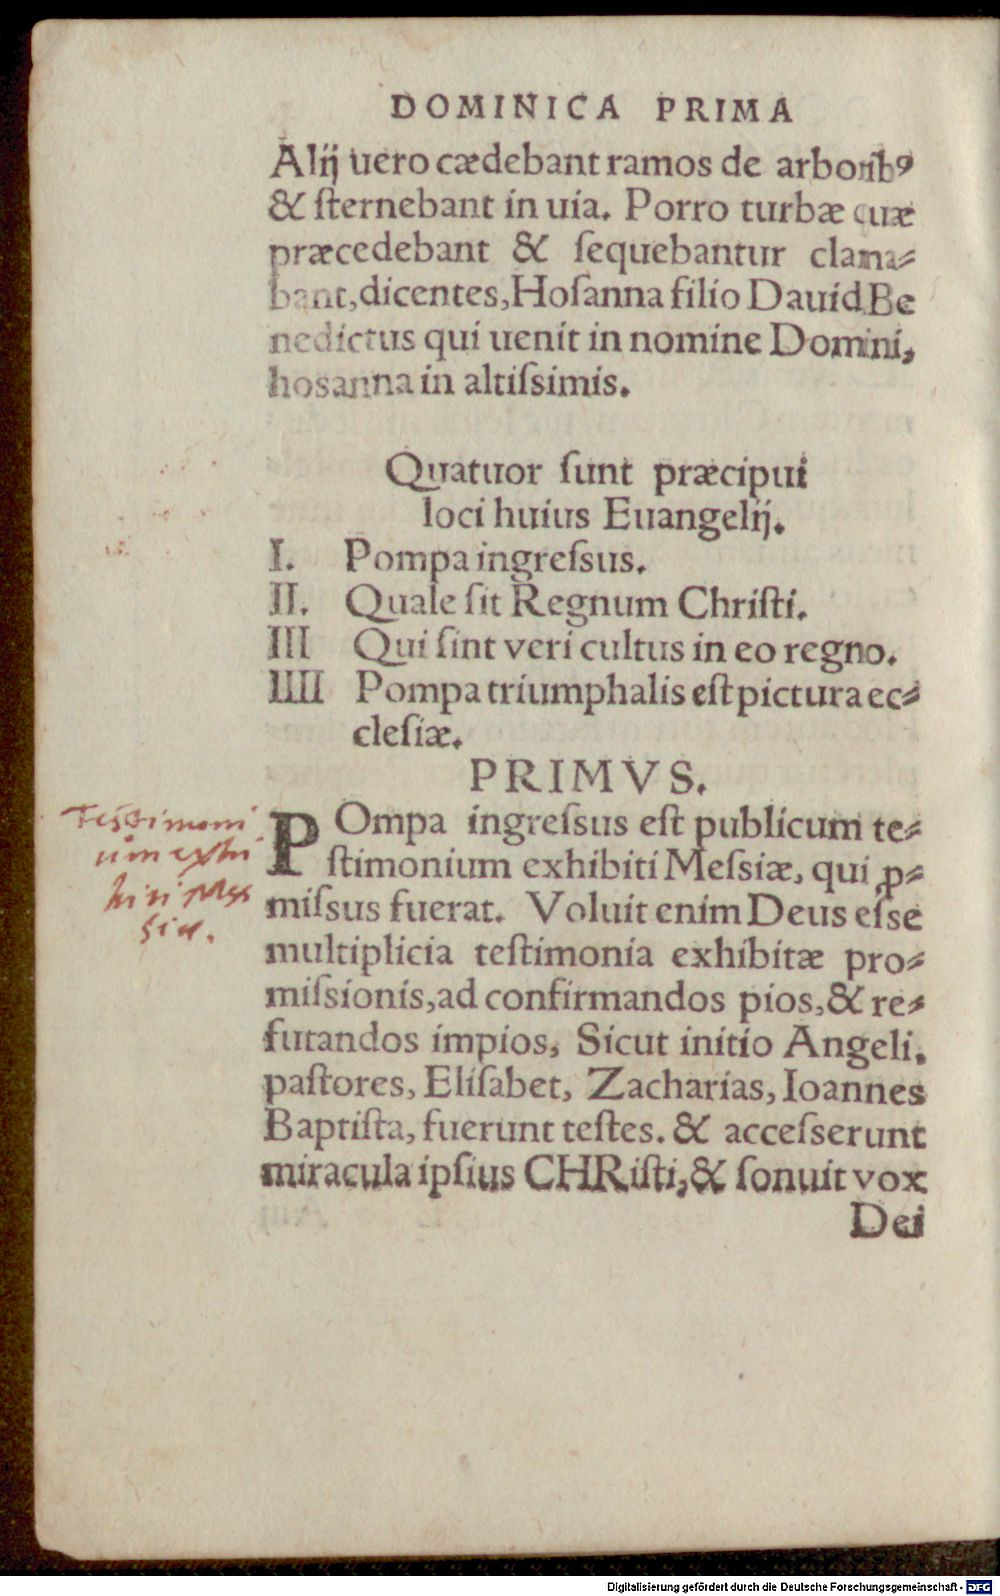 DOMINICA PRIMA
Alij uero cædebant ramos de arborib⁹
& ſternebant in uia. Porro turbæ quæ
præcedebant & ſequebantur clama⸗
bant, dicentes, Hoſanna filio Dauid Be
nedictus qui uenit in nomine Domini,
hosanna in altiſsimis.
Quatuor ſunt præcipui
loci huius Euangelij.
I. Pompa ingreſsus.
II. Quale ſit Regnum Chriſti.
III Qui ſint veri cultus in eo regno.
IIII Pompa triumphalis eſt pictura ec⸗
cleſiæ.
PRIMVS.
POmpa ingreſsus eſt publicum te⸗
ſtimonium exhibiti Meſsiæ, qui ꝓ⸗
miſsus fuerat. Voluit enim Deus eſse
multiplicia teſtimonia exhibitæ pro⸗
miſsionis, ad confirmandos pios, & re⸗
futandos impios, Sicut initio Angeli,
paſtores, Eliſabet, Zacharias, Ioannes
Baptiſta, fuerunt teſtes. & acceſserunt
miracula ipſius CHRiſti, & ſonuit vox
Dei
Testimoni
um exhi
biti Mes
siæ.
Digitalisierung gefördert durch die Deutsche Forschungsgemeinschaft - DFG